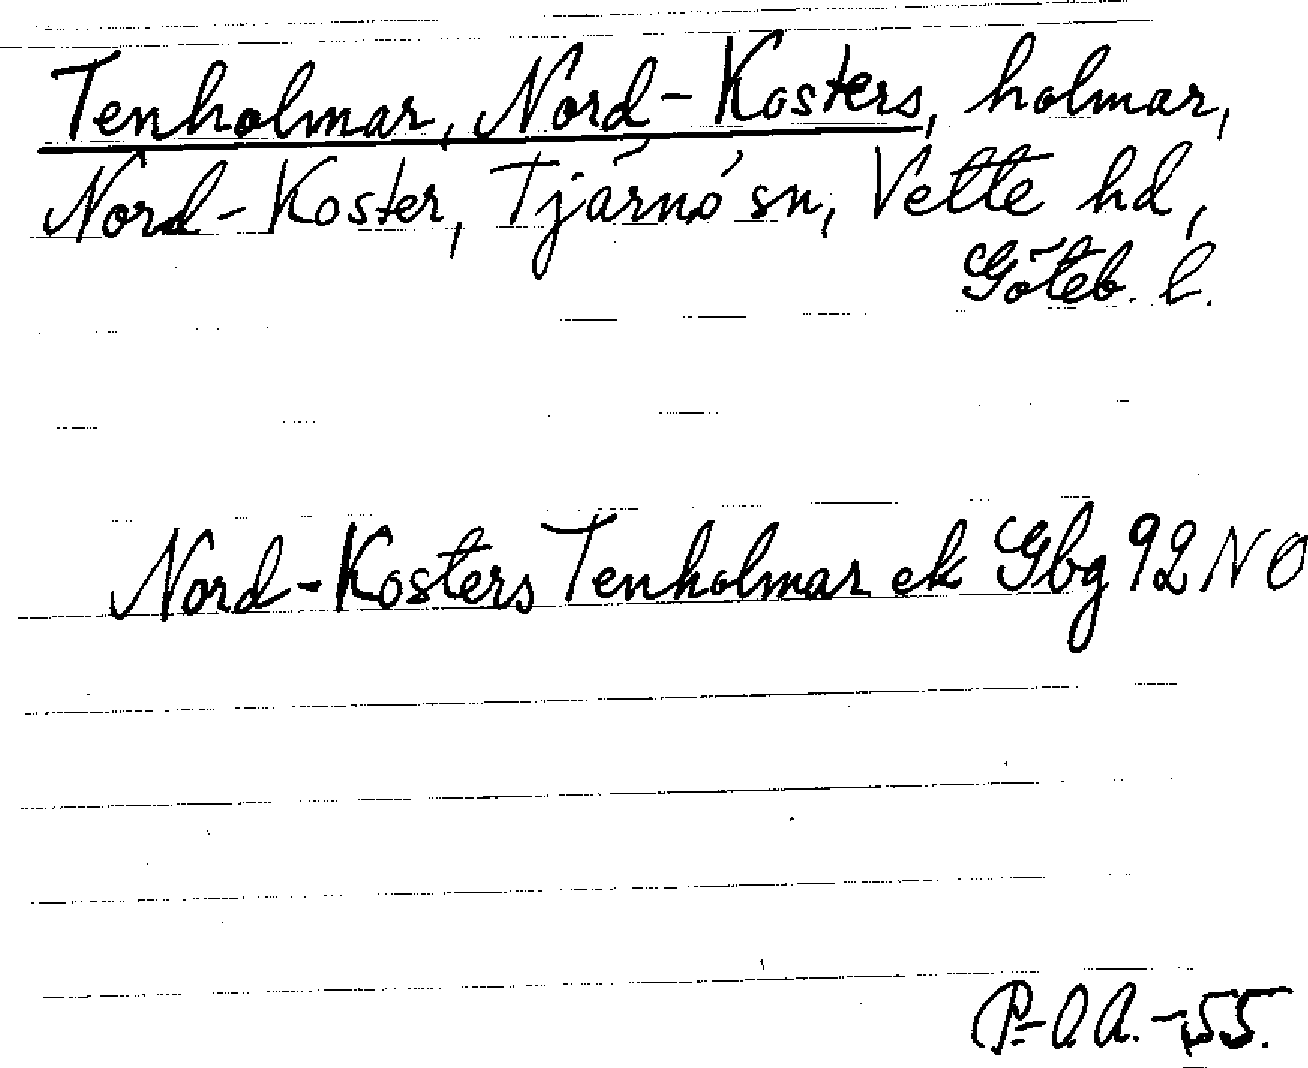 Tenholmar, Nord-Kosters, holmar,
Nord-Koster, Tjärnö sn, Vette hd,
Göteb. l.
Nord-Kosters Tenholmar ek Gbg 92 NO
P-O.A.-55.